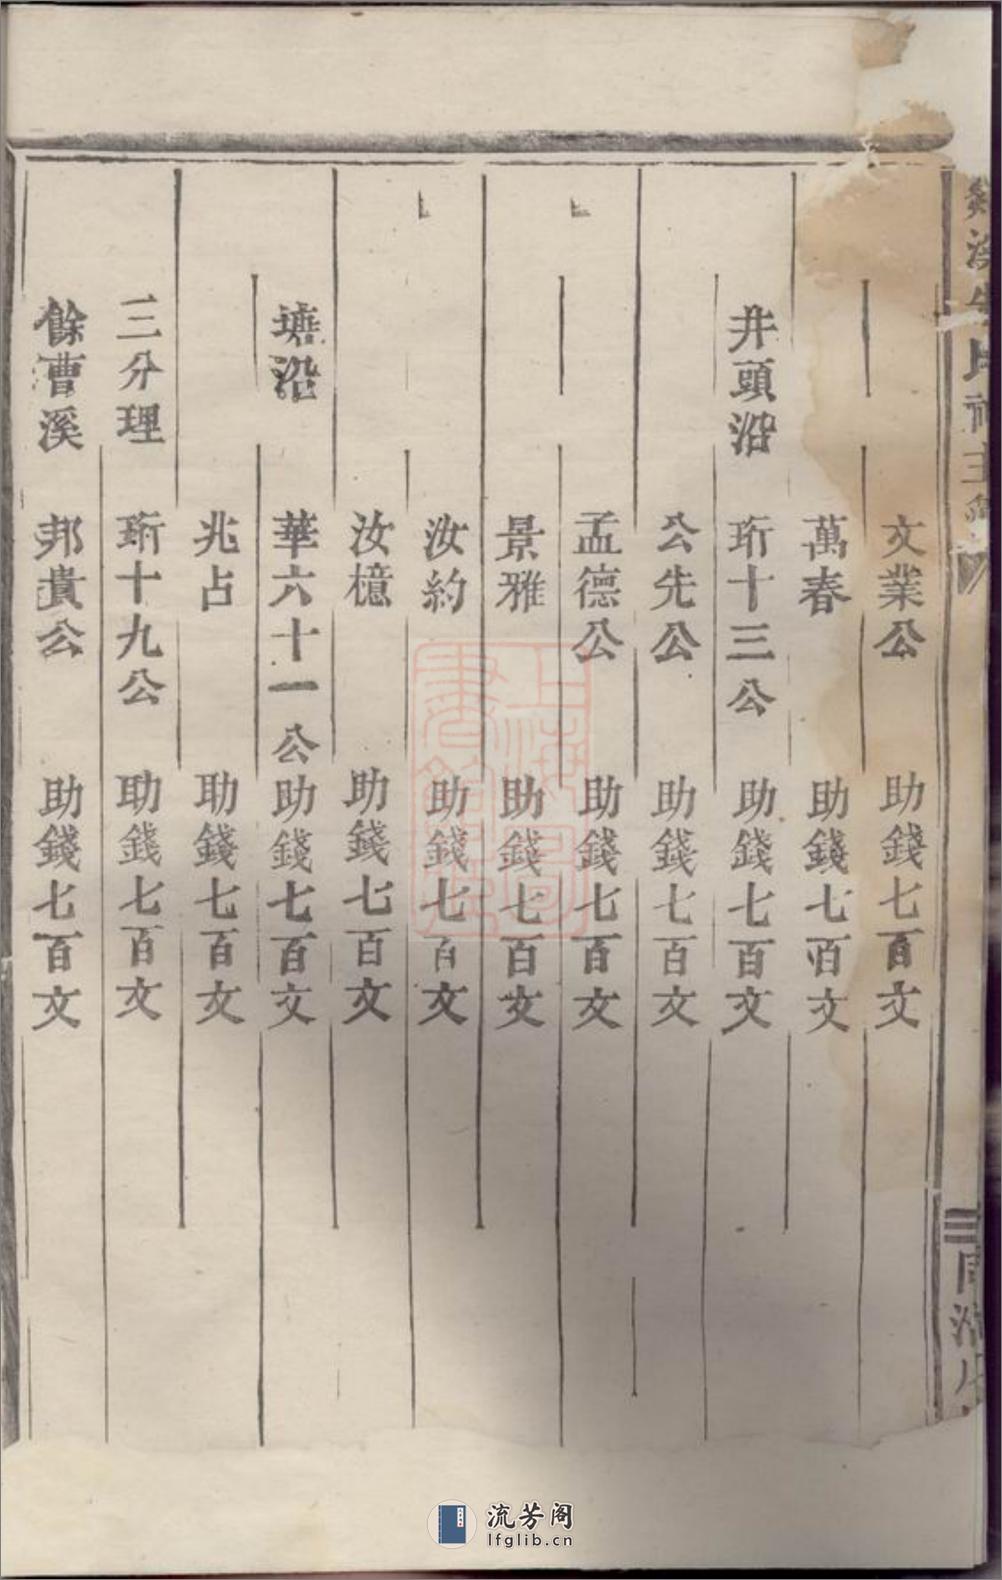 文業公 助錢七百文
萬春 助錢七百文
井頭沿 珩十三公 助錢七百文
公先公 助錢七百文
孟德公 助錢七百文
景雅 助錢七百文
汝約 助錢七百文
汝檍 助錢七百文
塘沿 華六十一公 助錢七百文
兆占 助錢七百文
三分理 珩十九公 助錢七百文
餘曹溪 邦貴公 助錢七百文
上海圖書館藏
流芳阁
lfglib.cn